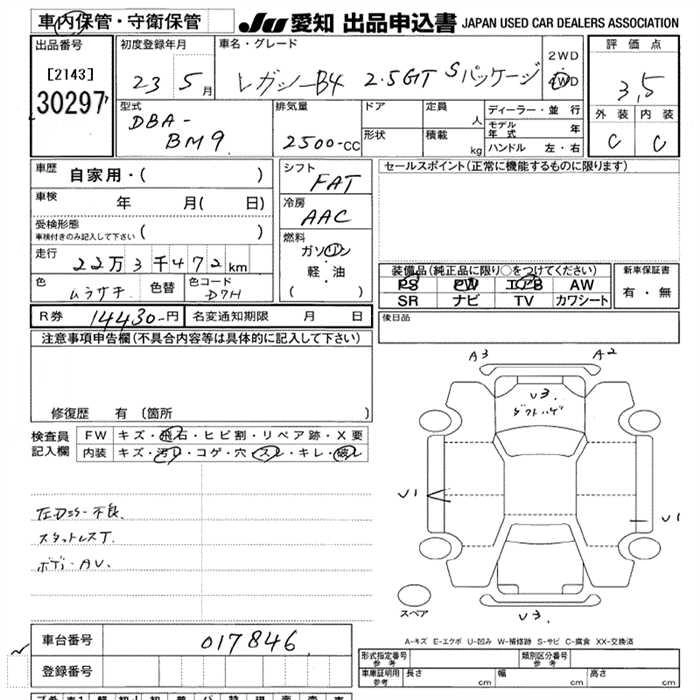 車内保管・守衛保管 JU 愛知 出品申込書 JAPAN USED CAR DEALERS ASSOCIATION
出品番号
[2143]
30297
初度登録年月
23 5月
車名・グレード
レガシーB4 2.5GT Sパッケージ
2WD
4WD
評価点
3.5
外装 内装
C C
型式
DBA-
BM9
排気量
2500-CC
ドア
形状
定員 人
積載 kg
ディーラー・並行
モデル年式 年
ハンドル 左・右
車歴 自家用・( )
車検 年 月( 日)
受検形態
車検付きのみ記入して下さい ( )
走行 22万3千472km
色 ムラサキ 色替 色コード D7H
シフト
FAT
冷房
AAC
燃料
ガソリン
軽・油
( )
セールスポイント(正常に機能するものに限ります)
装備品(純正品に限り○をつけてください)
PS PW エアB AW
SR ナビ TV カワシート
新車保証書
有・無
後日品
R券 14430-円 名変通知期限 月 日
注意事項申告欄(不具合内容等は具体的に記入して下さい)
修復歴 有 [箇所 ]
検査員記入欄
FW キズ・飛石・ヒビ割・リペア跡・X要
内装 キズ・汚レ・コゲ・穴・スレ・キレ・破レ
左Dミラー不良.
スタットレスT.
ボディ-AU.
A3 A2
U3.
U1
U1
スペア
U3.
A-キズ E-エクボ U-凹み W-補修跡 S-サビ C-腐食 XX-交換済
車台番号 017846
登録番号
形式指定番号
参考
類別区分番号
参考
車庫証明用
参考
長さ cm 幅 cm 高さ cm